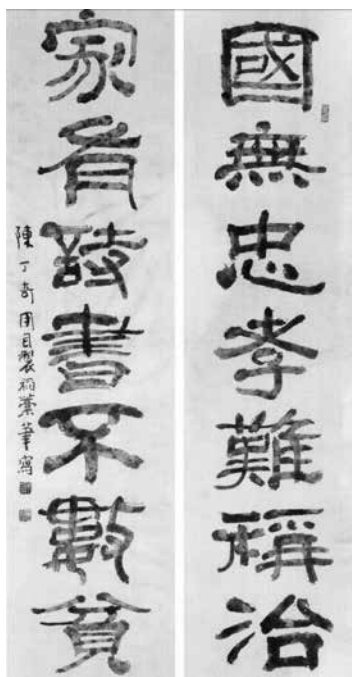 國無忠孝難稱治
家有詩書不數貧
陳丁奇用自製稻藁筆寫